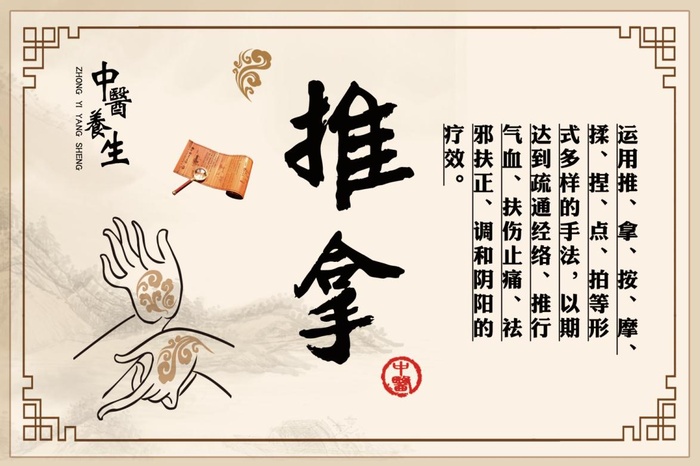 中醫養生
ZHONG YI YANG SHENG
推拿
中醫
运用推、拿、按、摩、
揉、捏、点、拍等形
式多样的手法，以期
达到疏通经络、推行
气血、扶伤止痛、祛
邪扶正、调和阴阳的
疗效。